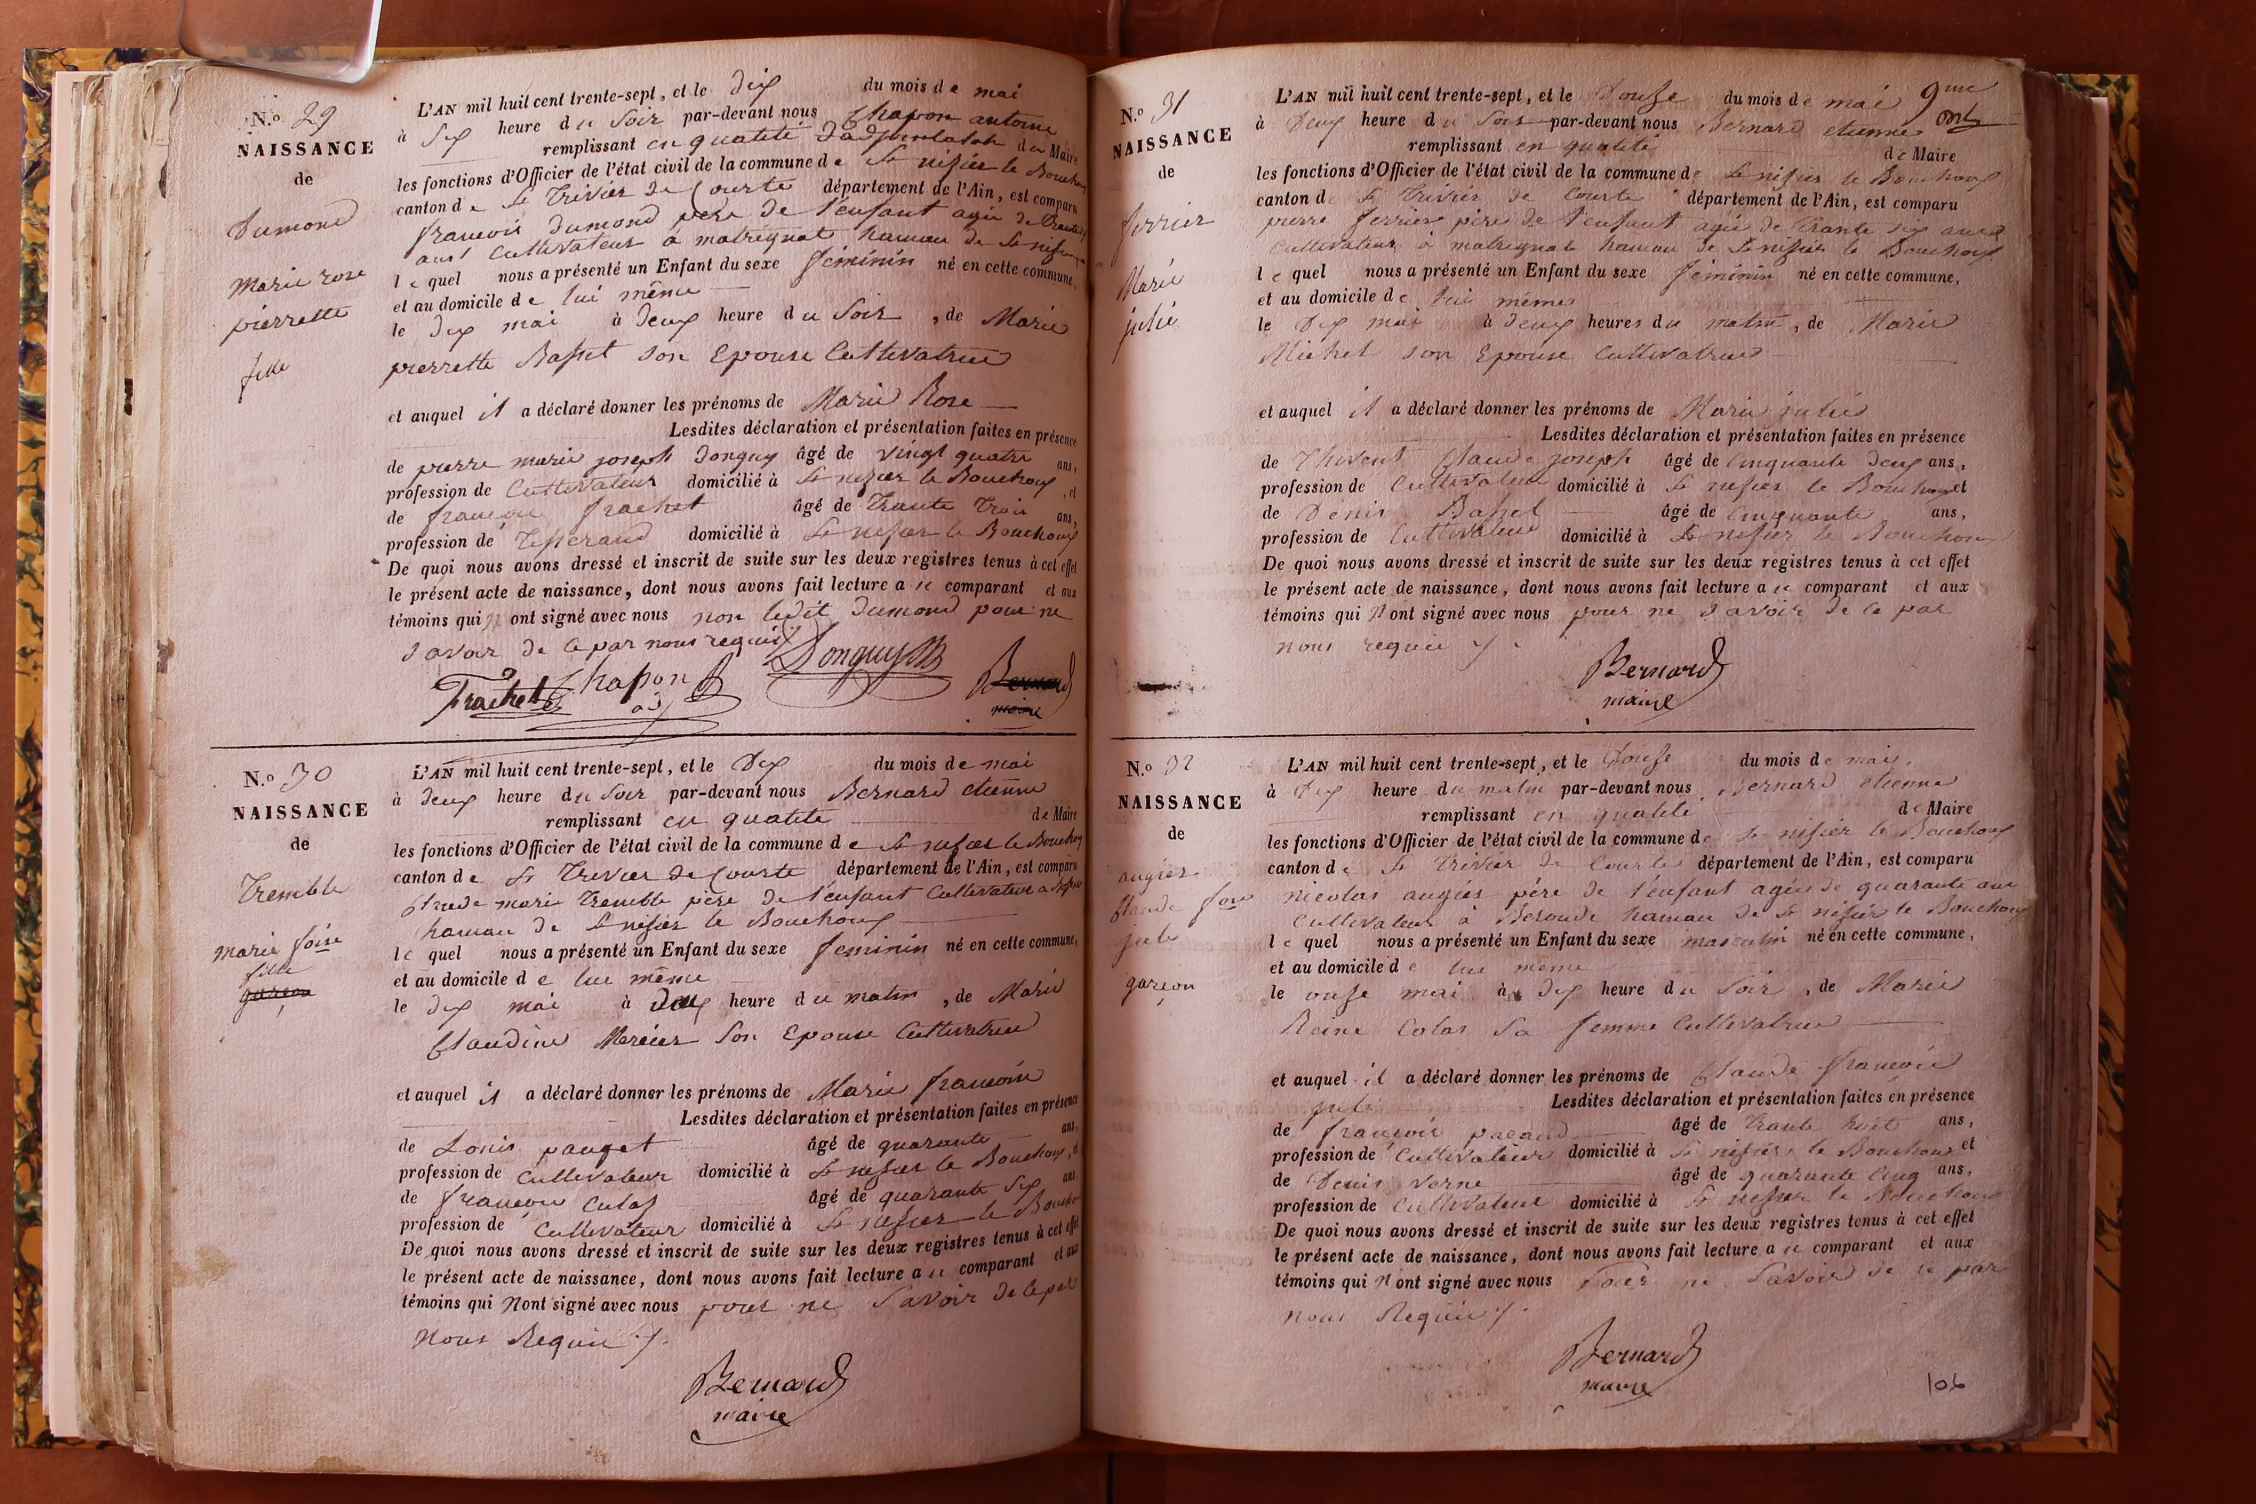 N.º 29
NAISSANCE
de
Dumond
Marie rose
pierrette
fille
L'AN mil huit cent trente-sept, et le dix du mois de mai
à six heure du Soir par-devant nous Chapon antoine
remplissant en qualité d'adjoint du Maire
les fonctions d'Officier de l'état civil de la commune de St nizier le Bouchoux
canton de St Trivier de Courte département de l'Ain, est comparu
francois dumond père de l'enfant agée de
ans Cultivateur à matrignat hamau de St nizier
le quel nous a présenté un Enfant du sexe féminin né en cette commune,
et au domicile de lui même
le dix mai à deux heure du Soir, de Marie
pierrette Basset son Epouse Cultivatrice
et auquel il a déclaré donner les prénoms de Marie Rose
Lesdites déclaration et présentation faites en présence
de pierre marie joseph donguy âgé de vingt quatre ans,
profession de Cultivateur domicilié à St nizier le Bouchoux, et
de francois frachet âgé de trante trois ans,
profession de Tisserand domicilié à St nizier le Bouchoux
De quoi nous avons dressé et inscrit de suite sur les deux registres tenus à cet effet
le présent acte de naissance, dont nous avons fait lecture au comparant et aux
témoins qui ont signé avec nous non ledit dumond pour ne
savoir de ce par nous requis
Donguy
Frachet Chapon adj
Bernard
maire
N.º 30
NAISSANCE
de
Tremble
marie foise
fille
garçon
L'AN mil huit cent trente-sept, et le Dix du mois de mai
à deux heure du Soir par-devant nous Bernard etienne
remplissant en qualité de Maire
les fonctions d'Officier de l'état civil de la commune de St nizier le Bouchoux
canton de St Trivier de Courte département de l'Ain, est comparu
Claude marie Tremble père de l'enfant Cultivateur a
hamau de St nizier le Bouchoux
le quel nous a présenté un Enfant du sexe feminin né en cette commune,
et au domicile de lui même
le dix mai à deux heure du matin, de Marie
Claudine Mercier Son Epouse Cultivatrice
et auquel il a déclaré donner les prénoms de Marie francoise
Lesdites déclaration et présentation faites en présence
de Louis pauget âgé de quarante ans,
profession de Cultivateur domicilié à St nizier le Bouchoux, et
de francois Colas âgé de quarante Six ans
profession de Cultivateur domicilié à St nizier le Bouchoux
De quoi nous avons dressé et inscrit de suite sur les deux registres tenus à cet effet
le présent acte de naissance, dont nous avons fait lecture au comparant et aux
témoins qui nont signé avec nous pour ne Savoir de ce par
nous Requis
Bernard
maire
N.º 31
NAISSANCE
de
ferrier
Marie
julie
L'AN mil huit cent trente-sept, et le Douze du mois de mai 9me
à Deux heure du Soir par-devant nous Bernard etienne
remplissant en qualité de Maire
les fonctions d'Officier de l'état civil de la commune de St nizier le Bouchoux
canton de St Trivier de Courte département de l'Ain, est comparu
pierre ferrier père de l'enfant agée de trante six ans
Cultivateur à matrignat hamau de St nizier le Bouchoux
le quel nous a présenté un Enfant du sexe féminin né en cette commune,
et au domicile de lui même
le Dix mai à deux heures du matin, de Marie
Michel son Epouse Cultivatrice
et auquel il a déclaré donner les prénoms de Marie julie
Lesdites déclaration et présentation faites en présence
de Thivent Claude joseph âgé de Cinquante deux ans,
profession de Cultivateur domicilié à St nizier le Bouchoux et
de Denis Bahel âgé de Cinquante ans,
profession de Cultivateur domicilié à St nizier le Bouchoux
De quoi nous avons dressé et inscrit de suite sur les deux registres tenus à cet effet
le présent acte de naissance, dont nous avons fait lecture au comparant et aux
témoins qui nont signé avec nous pour ne Savoir de ce par
nous requis
Bernard
maire
N.º 32
NAISSANCE
de
augier
Claude fois
jule
garçon
L'AN mil huit cent trente-sept, et le Douze du mois de mai
à Dix heure du matin par-devant nous Bernard etienne
remplissant en qualité de Maire
les fonctions d'Officier de l'état civil de la commune de St nizier le Bouchoux
canton de St Trivier de Courte département de l'Ain, est comparu
nicolas augier père de l'enfant agée de quarante ans
Cultivateur à Beroude hamau de St nizier le Bouchoux
le quel nous a présenté un Enfant du sexe masculin né en cette commune,
et au domicile de lui même
le onze mai à dix heure du Soir, de Marie
Reine Colas Sa femme Cultivatrice
et auquel il a déclaré donner les prénoms de Claude francois
jule Lesdites déclaration et présentation faites en présence
de francois pacaud âgé de trante huit ans,
profession de Cultivateur domicilié à St nizier le Bouchoux et
de Denis Verne âgé de quarante Cinq ans,
profession de Cultivateur domicilié à St nizier le Bouchoux
De quoi nous avons dressé et inscrit de suite sur les deux registres tenus à cet effet
le présent acte de naissance, dont nous avons fait lecture au comparant et aux
témoins qui nont signé avec nous Pour ne Savoir de ce par
nous Requis
Bernard
maire
106